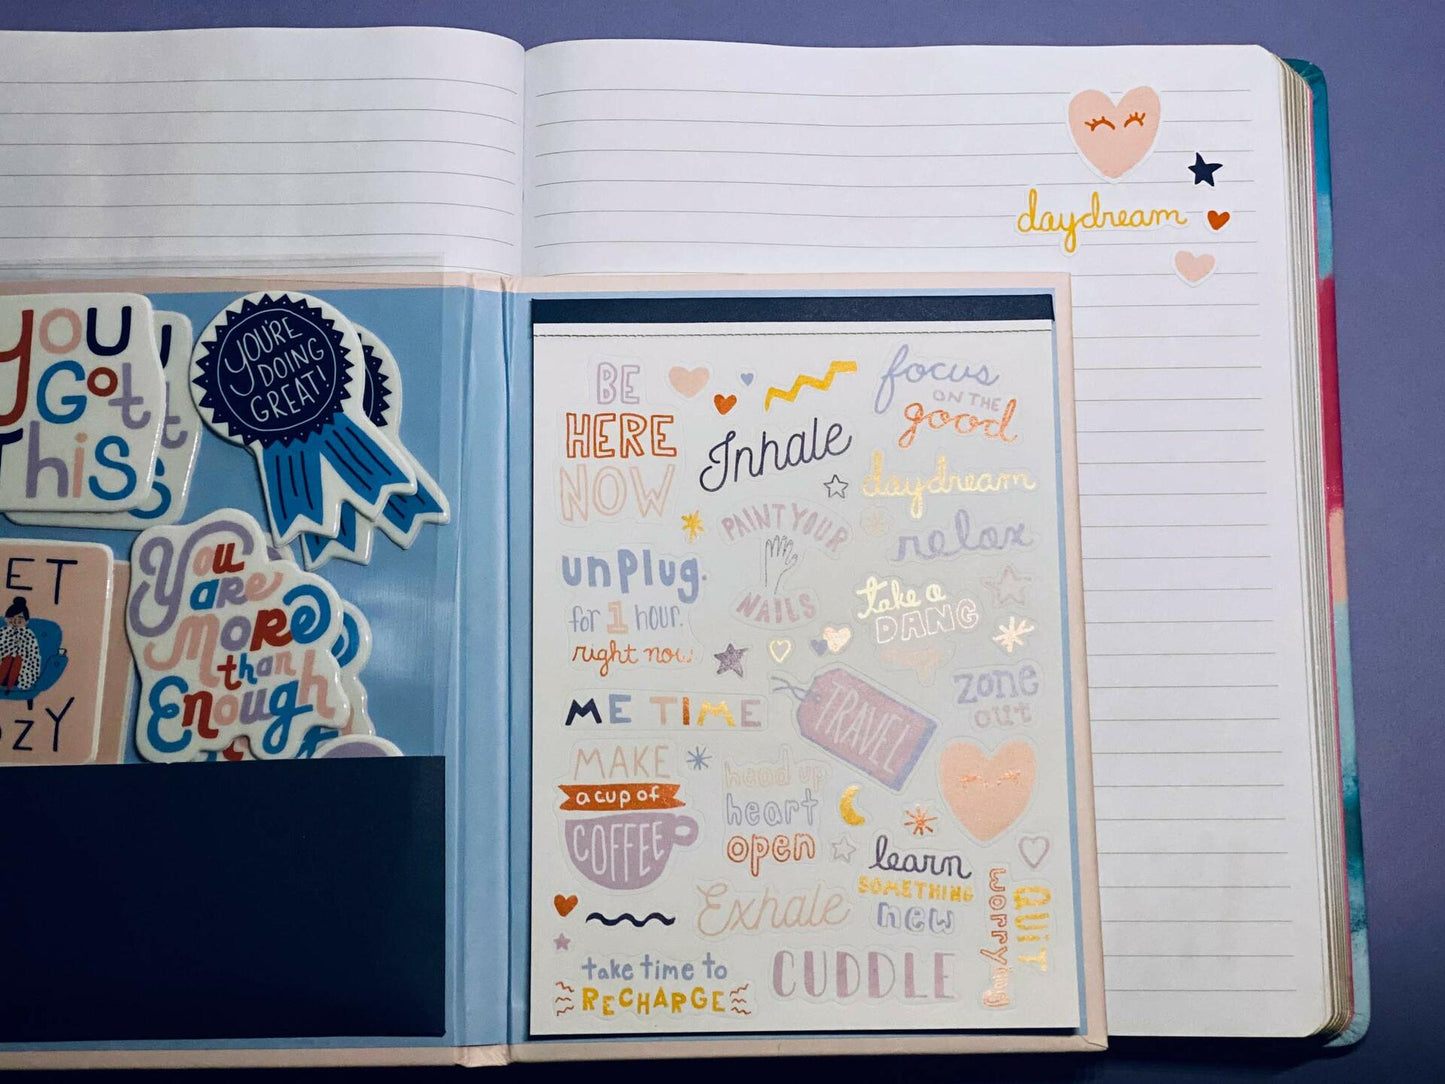 daydream
YOU
GOT
THIS
YOU'RE
DOING
GREAT!
ET
ZY
You
are
more
than
Enough
BE
HERE
NOW
Inhale
focus
ON THE
good
daydream
relax
PAINT YOUR
NAILS
unplug.
for 1 hour.
right now
take a
DANG
ME TIME
TRAVEL
zone
out
MAKE
a cup of
COFFEE
head up
heart
open
learn
SOMETHING
new
Exhale
QUIT
worrying
take time to
RECHARGE
CUDDLE